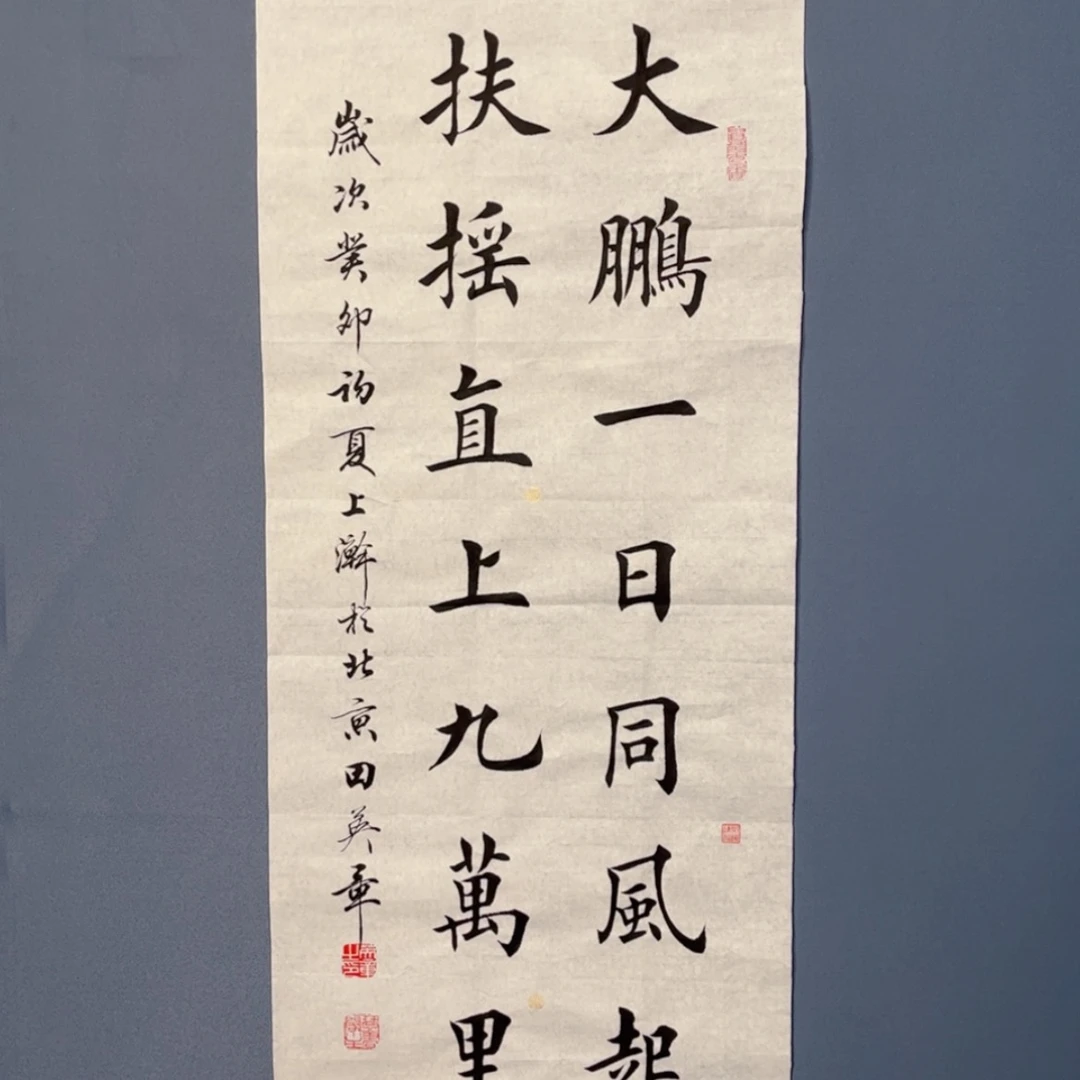 大鵬一日同風起
扶摇直上九萬里
歲次癸卯初夏上澣於北京田英章